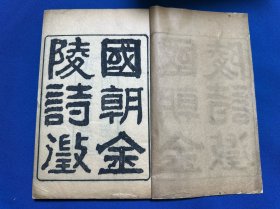 國朝金
陵詩徵